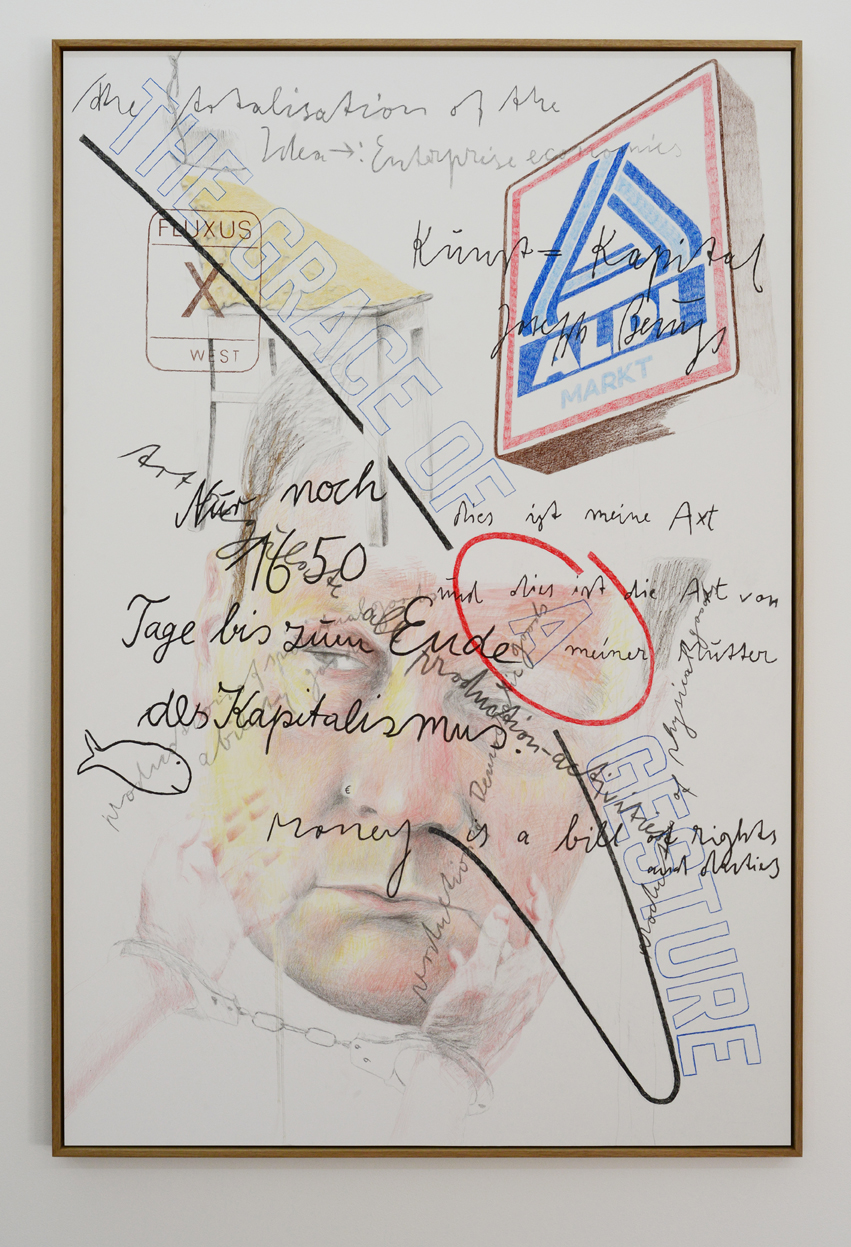 the totalisation of the
Idea →: Enterprise economics
THE GRACE OF
A
GESTURE
FLUXUS
X
WEST
Kunst = Kapital
Joseph Beuys
ALDI
MARKT
Art
Nur noch
1650
Tage bis zum Ende
des Kapitalismus.
dies ist meine Axt
und dies ist die Axt von
meiner Mutter
production-activities
production
of physical goods
€
Money is a bill of rights
and duties